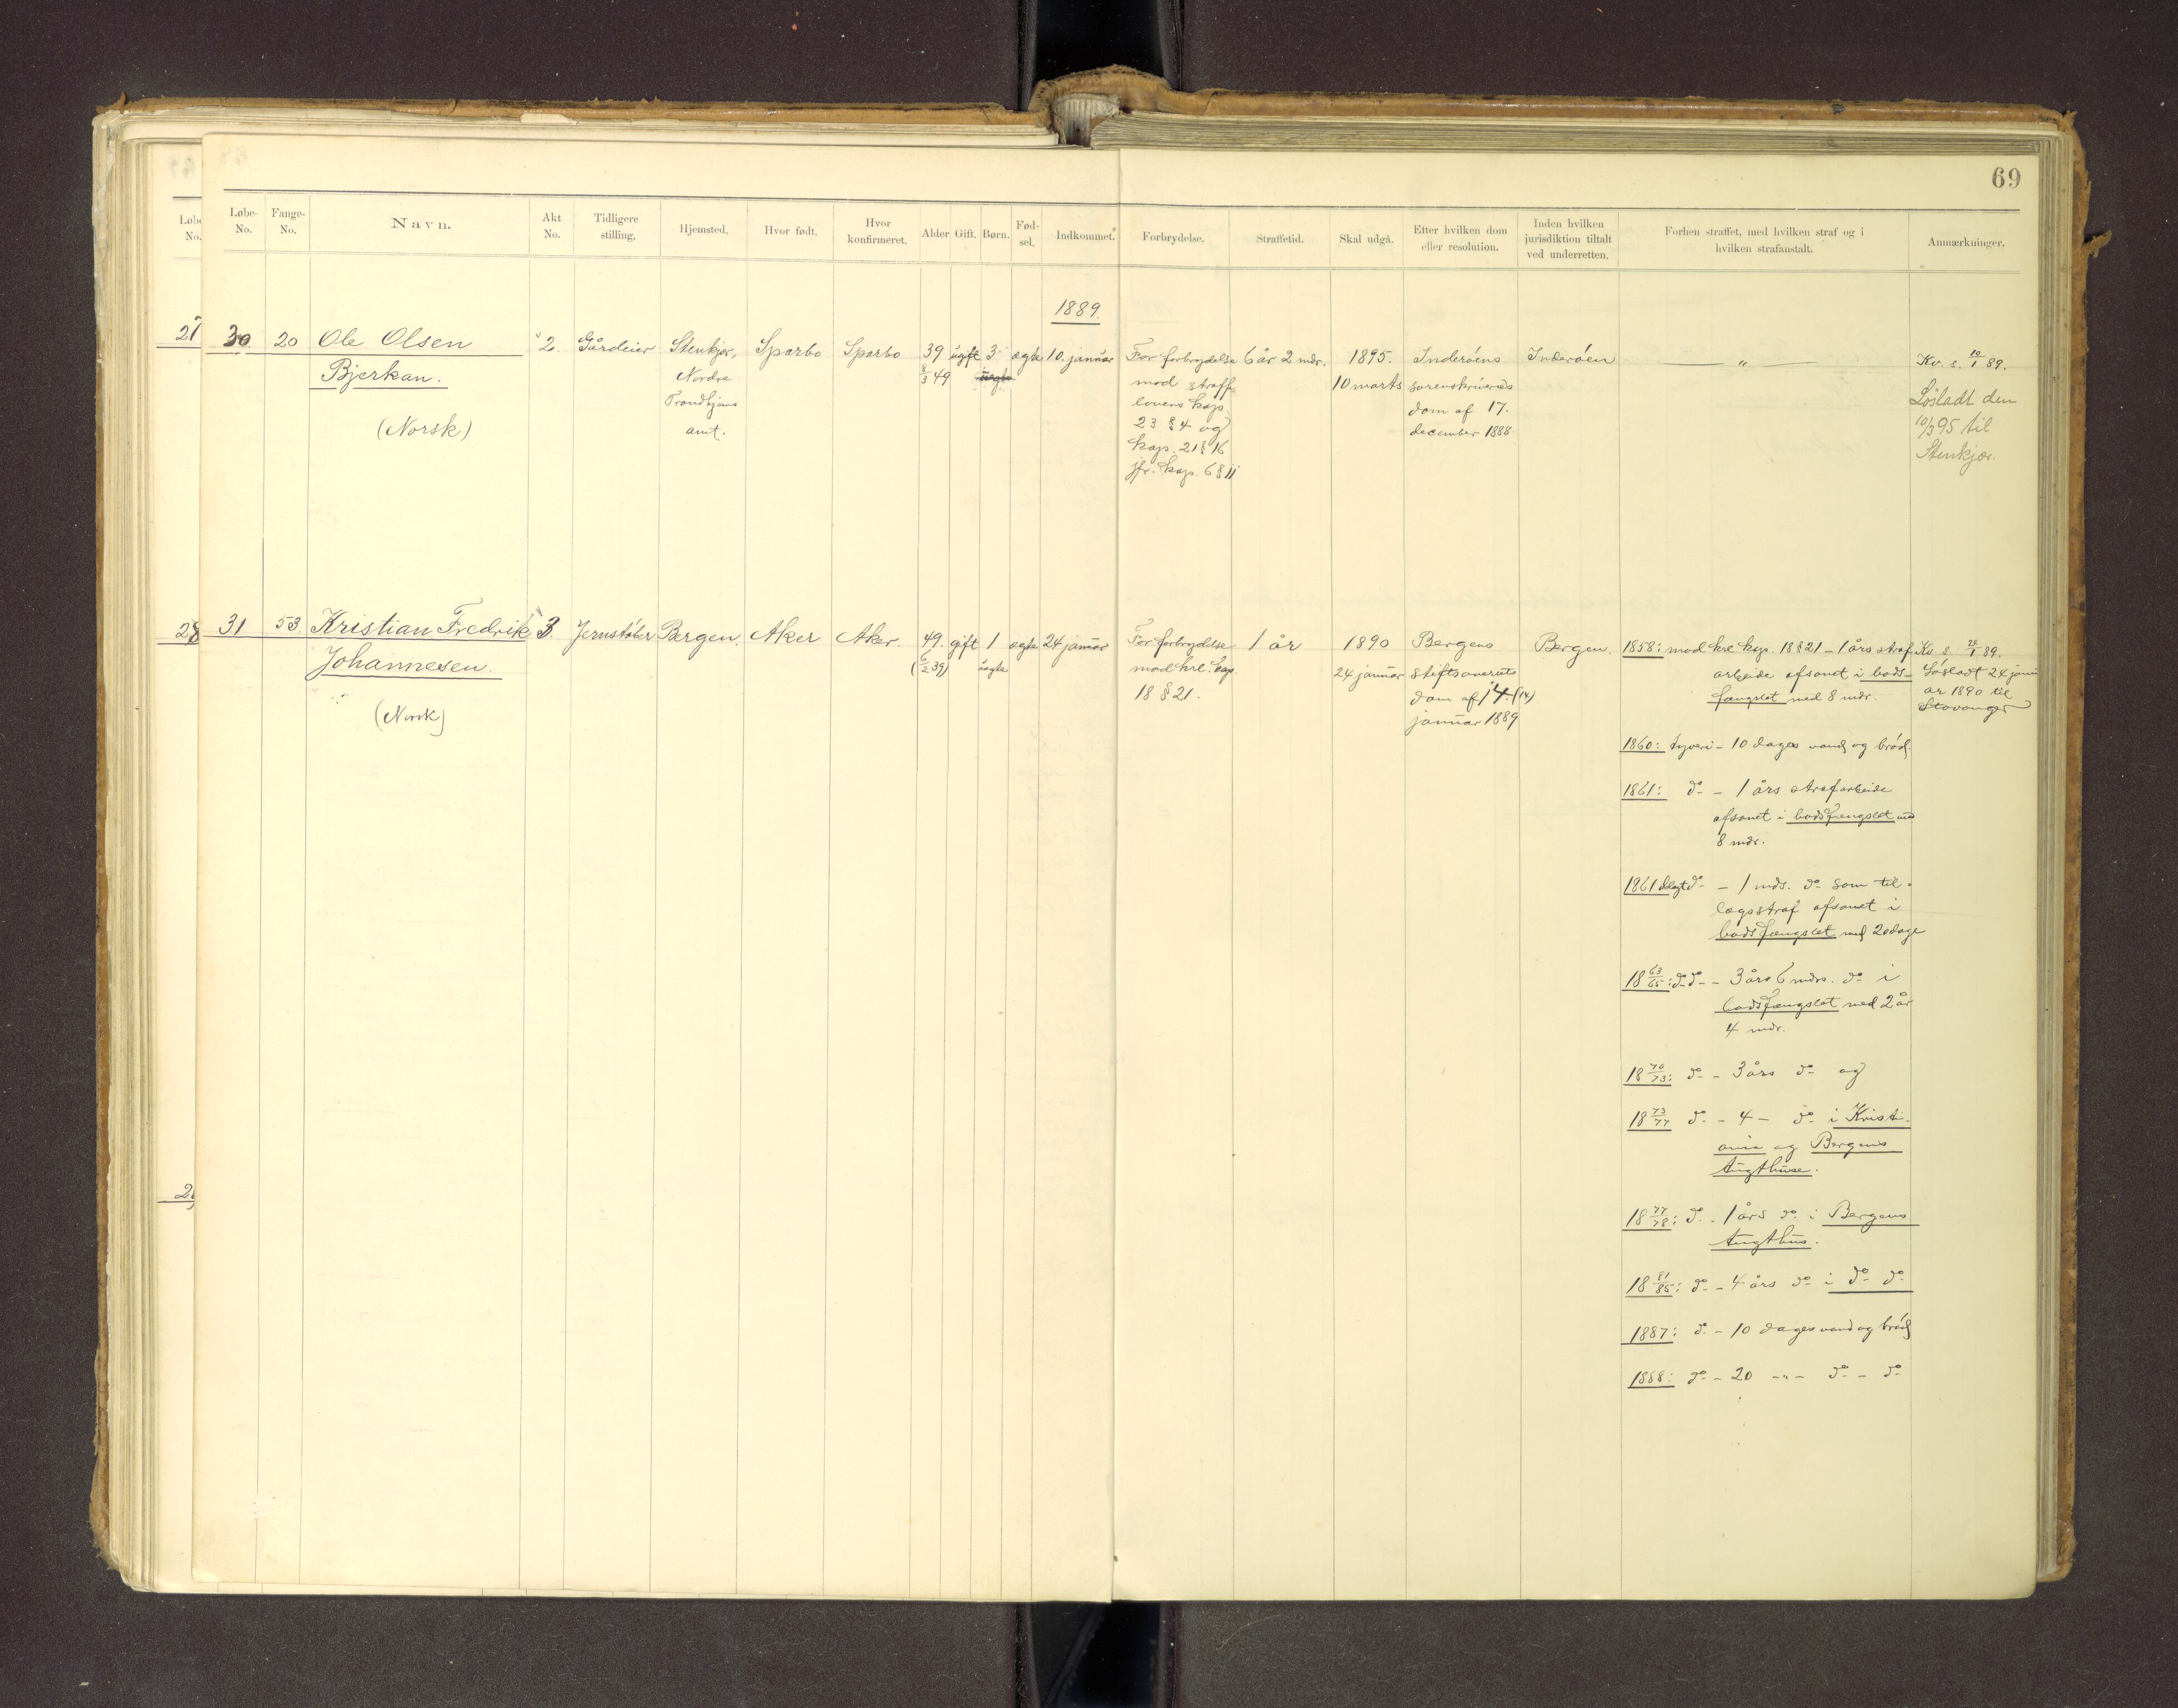 69
Løbe-No. Fange-No. Navn. Akt No. Tidligere stilling. Hjemsted. Hvor født. Hvor konfirmeret. Alder Gift. Børn. Fød-sel. Indkommet. Forbrydelse. Straffetid. Skal udgå. Efter hvilken dom eller resolution. Inden hvilken jurisdiktion tiltalt ved underretten. Forhen straffet, med hvilken straf og i hvilken strafanstalt. Anmærkninger.
1889.
27
30 20 Ole Olsen
Bjerkan.
(Norsk)
2. Gårdeier
Stenkjær,
Nordre
Trondhjems
amt.
Sparbo
Sparbo
39
8/3 49
ugift
3
uegte
ægte
10. januar
For forbrydelse
mod straffe
lovens kap.
23 § 4 og
kap. 21 § 16
jfr. kap. 6 § 11
6 år 2 mdr.
1895.
10 marts
Inderøens
sorenskriveries
dom af 17.
december 1888.
Inderøen
"
Kv. s. 10/1 89.
Løsladt den
10/3 95 til
Stenkjær.
28
31 53. Kristian Fredrik
Johannesen.
(Norsk)
3. Jernstøber
Bergen.
Aker
Aker.
49.
(6/2 39)
gift
1
uægte
ægte
24 januar
For forbrydelse
mod krl. kap.
18 § 21.
1 år
1890
24 januar
Bergens
stiftsoverrets
dom af 14. (14)
januar 1889
Bergen.
1858: mod krl. kap. 18 § 21 – 1 års straf
arbeide afsonet i bods-
fængslet med 8 mdr.
1860: tyveri – 10 dages vand og brød.
1861: do – 1 års strafarbeide
afsonet i bodsfængslet med
8 mdr.
1861 do – 1 mds. do som til-
lægsstraf afsonet i
bodsfængslet med 20 dage
18 63/65: do do – 3 års 6 mdrs. do i
bodsfængslet med 2 år
4 mdr.
18 70/73: do – 3 års do og
18 73/77 do – 4 – do i Kristi-
ania og Bergens
tugthuse.
18 77/78: do – 1 års do i Bergens
tugthus.
18 81/85: do – 4 års do i do do
1887: do – 10 dages vand og brød
1888: do – 20 –"– do – do
Kv. s. 24/1 89.
Løsladt 24 janu
ar 1890 til
Stavanger